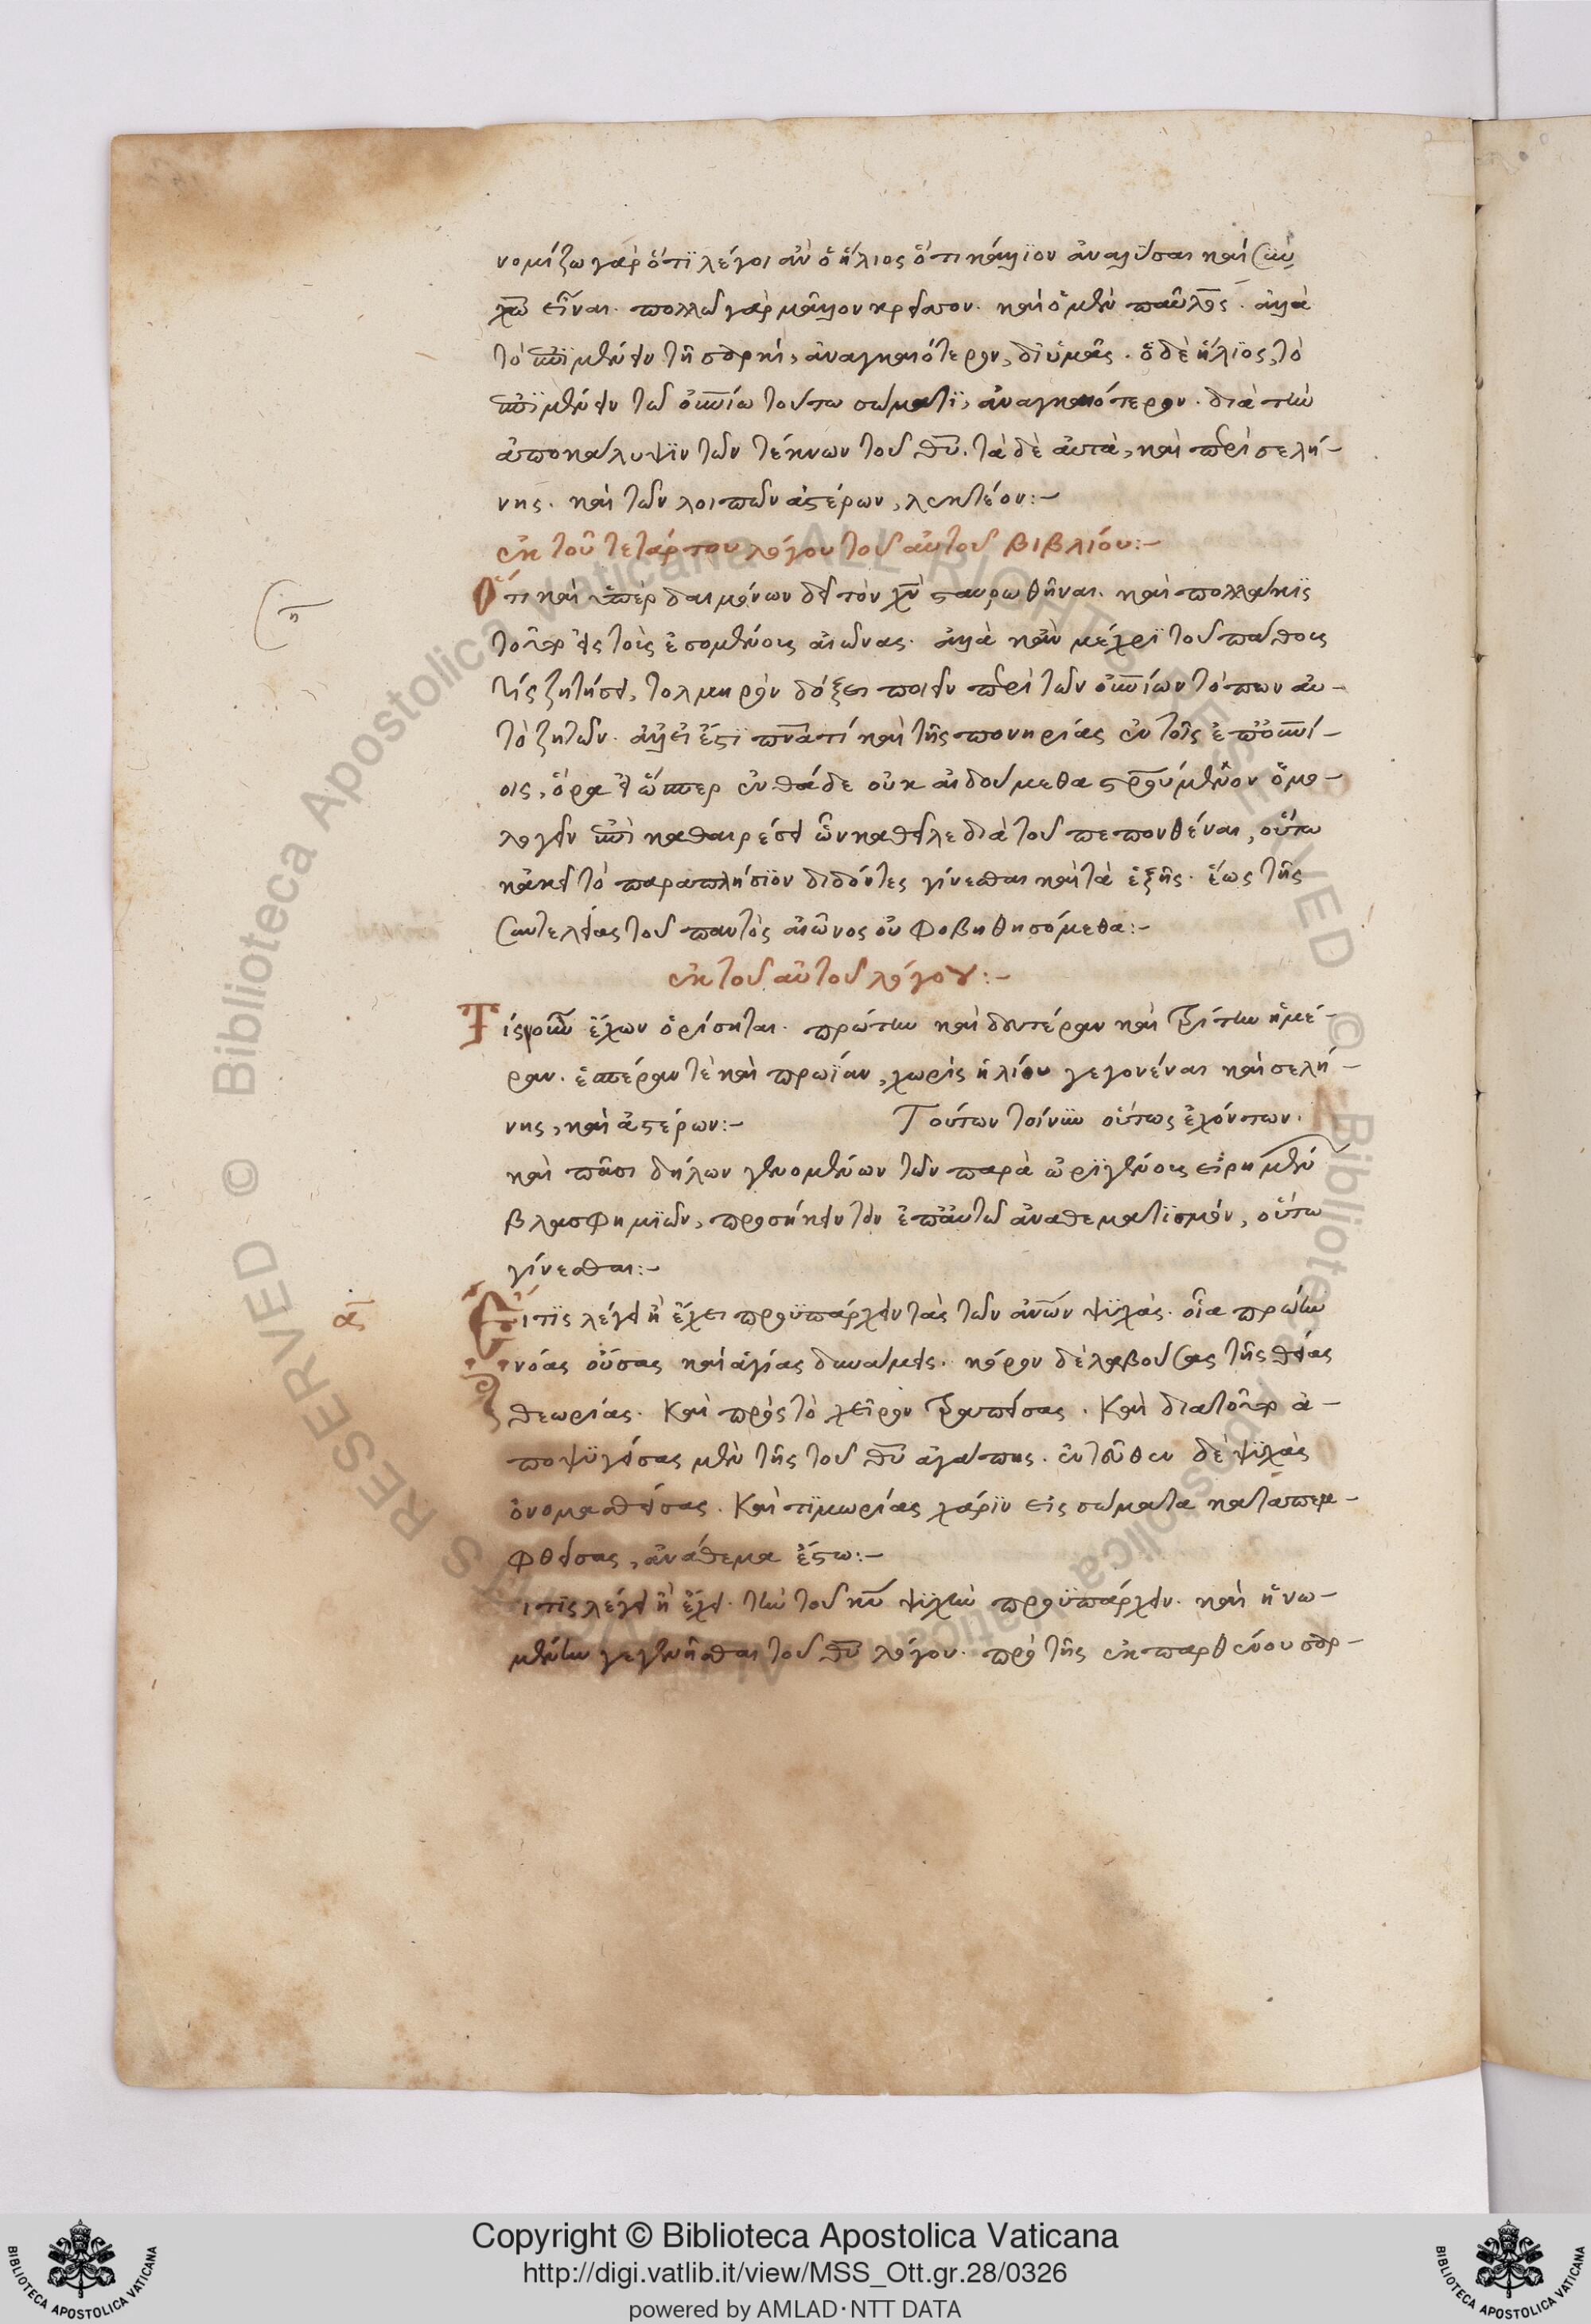 νομίζω γὰρ ὅτϊ λέγοι ἂν ὁ ἥλιος ὅτι κάλλιον ἀναλῦσαι καὶ σὺν
χω εἶναι. πολλῶ γὰρ μᾶλλον κρεῖσσον. καὶ ὁ μὲν παῦλος. ἀλλὰ
τὸ ἐπϊμένειν τῆ σαρκὶ, ἀναγκαιότερον, δϊ ὑμᾶς. ὁ δὲ ἥλϊος, τὸ
ἐπϊμένειν τῶ οὐνίω τούτω σώματϊ, ἀναγκαιότερον. διὰ τὴν
ἀποκάλυψϊν τῶν τέκνων τοῦ θυ. τὰ δὲ αὐτὰ, καὶ περὶ σελή-
νης. καὶ τῶν λοιπῶν ἀστέρων, λεκτέον:-
ἐκ τοῦ τετάρτου λόγου τοῦ αὐτοῦ βιβλίου:-
Ὅτι καὶ ὑπὲρ δαιμόνων δεῖ τὸν χν σταυρωθῆναι. καὶ πολλάκϊς
τοῦτο εἰς τοὺς ἐσομένους αἰῶνας. ἀλλὰ κἂν μέχρϊ τοῦ πάθους
τίς ζητήσει, τολμηρὸν δόξει ποιεῖν περὶ τῶν οὐνίων τόπων αὐ-
τὸ ζητῶν. ἀλλ εἰ ἔστϊ πνατί καὶ τῆς πονηρίας ἐν τοῖς ἐπουνί-
οις, ὅρα εἰ ὥσπερ ἐνθάδε οὐκ αἰδούμεθα στρούμενον ὁμο-
λογεῖν ἐπὶ καθαιρέσει ὧν καθεῖλε διὰ τοῦ πεπονθέναι, οὕτω
κἀκεῖ τὸ παραπλήσϊον διδόντες γίνεσθαι καὶ τὰ ἑξῆς. ἕως τῆς
συντελείας τοῦ παντὸς αἰῶνος οὐ φοβηθησόμεθα:-
ἐκ τοῦ αὐτοῦ λόγου:-
Τίς νοῦν ἔχων οἰήσηται. πρώτην καὶ δευτέραν καὶ τρίτην ἡμέ-
ραν. ἑσπέραν τὲ καὶ πρωΐαν, χωρὶς ἡλίου γεγονέναι καὶ σελή-
νης, καὶ ἀστέρων:- Τούτων τοίνυν οὕτως ἐχόντων.
καὶ πᾶσι δήλων γενομένων τῶν παρὰ ὠρϊγένους εἰρημένων
βλασφημϊῶν, προσήκειν τὸν ἐπαὐτῶ ἀναθεματϊσμὸν, οὕτω
γίνεσθαι:-
α
Εἴ τϊς λέγει ἢ ἔχει προϋπάρχειν τὰς τῶν ἀνων ψϋχὰς. οἷα πρώην
νόας οὔσας καὶ ἁγίας δυνάμεις. κόρον δὲ λαβούσας τῆς θείας
θεωρίας. Καὶ πρὸς τὸ χεῖρον τραπείσας. Καὶ διατοῦτο ἀ-
ποψϋγείσας μὲν τῆς τοῦ θυ ἀγάπης. ἐντεῦθεν δὲ ψϋχὰς
ὀνομασθείσας. Καὶ τϊμωρίας χάρϊν εἰς σώματα καταπεμ-
φθείσας, ἀνάθεμα ἔστω:-
ι τϊς λέγει ἢ ἔχει. τὴν τοῦ κυ ψϋχὴν προϋπάρχειν. καὶ ἡνω-
μένην γεγενῆσθαι τοῦ θυ λόγου. πρὸ τῆς ἐκ παρθένου σαρ-